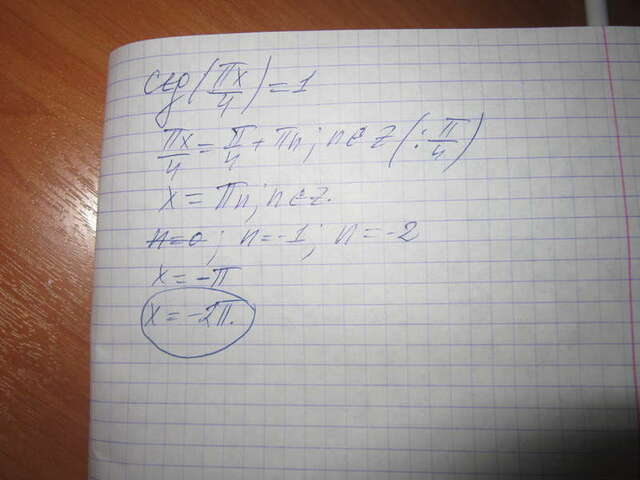 ctg(πx/4) = 1
πx/4 = π/4 + πn; n∈z (: π/4)
x = πn; n∈z.
n=0; n=-1; n=-2
x = -π
x = -2π.